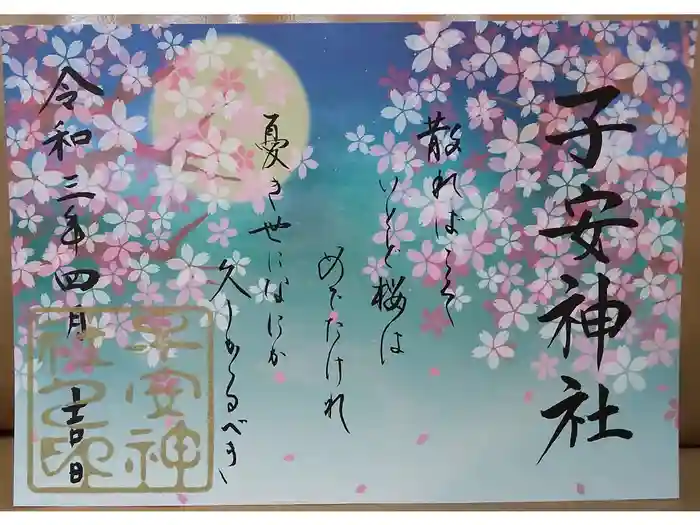 子安神社
散ればこそ
いとど桜は
めでたけれ
憂き世になにか
久しかるべき
令和三年四月 吉日
子安神
社之印